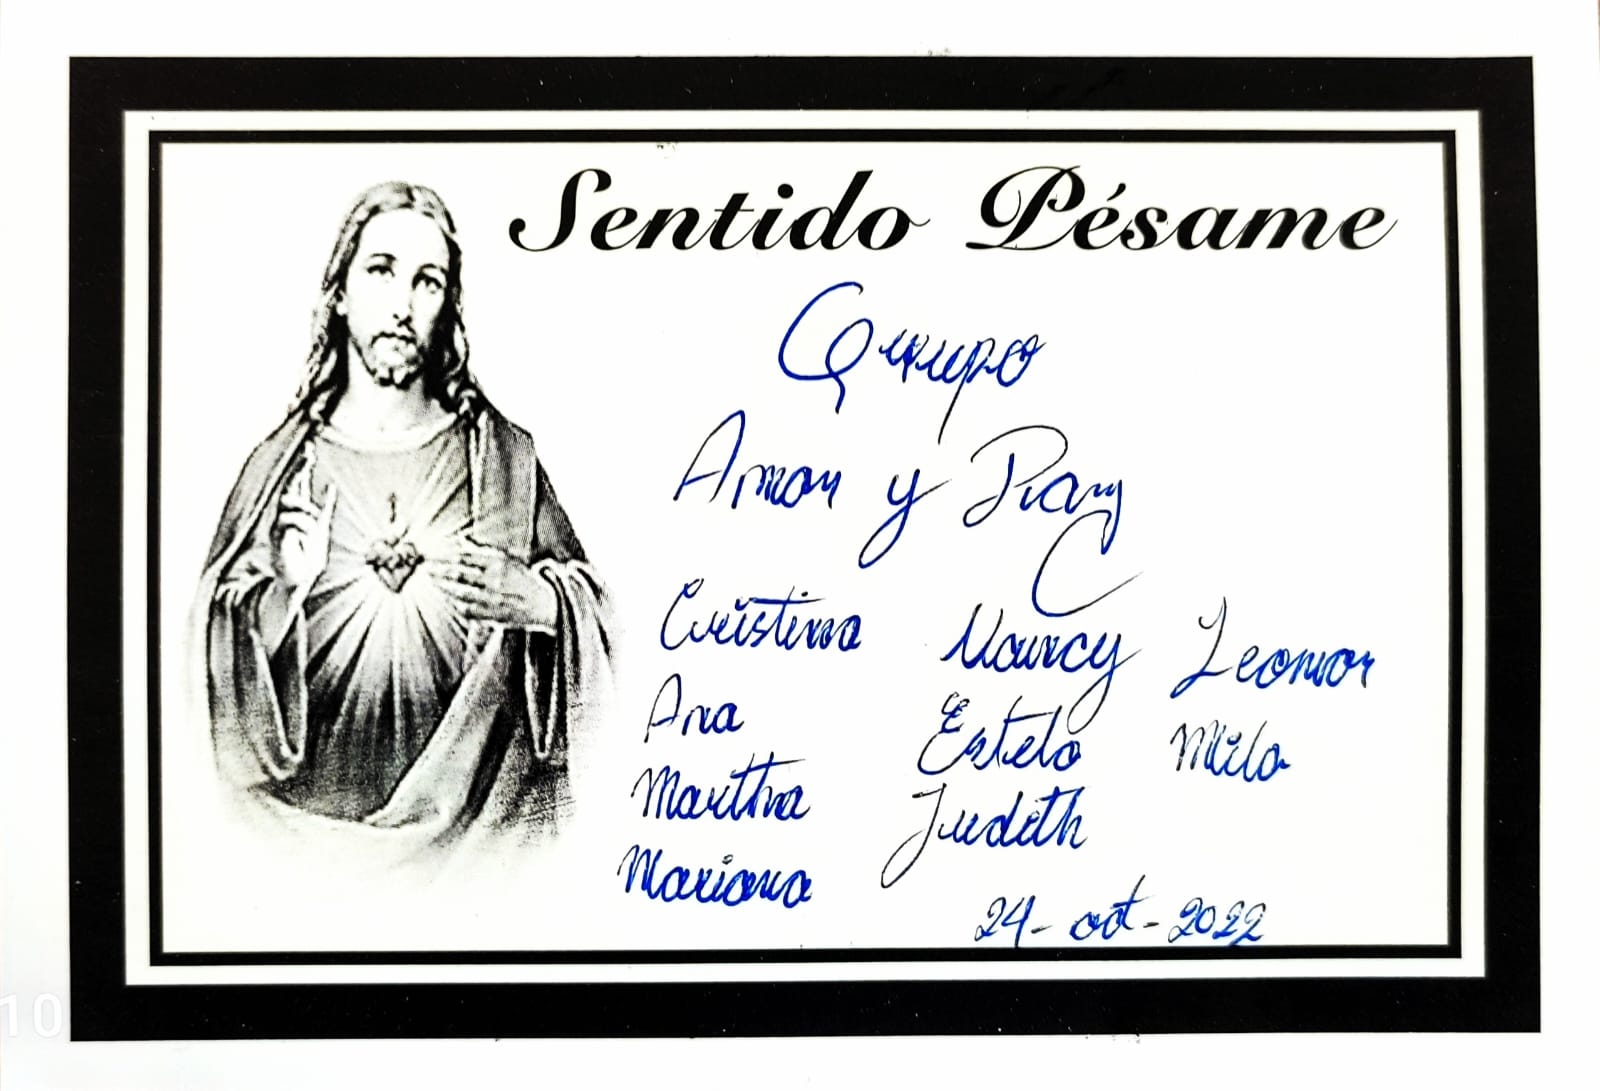 Sentido Pésame
Grupo
Amor y Paz
Cristina Nancy Leonor
Ana Estela Mila
Martha Judith
Mariana
24-oct-2022
10